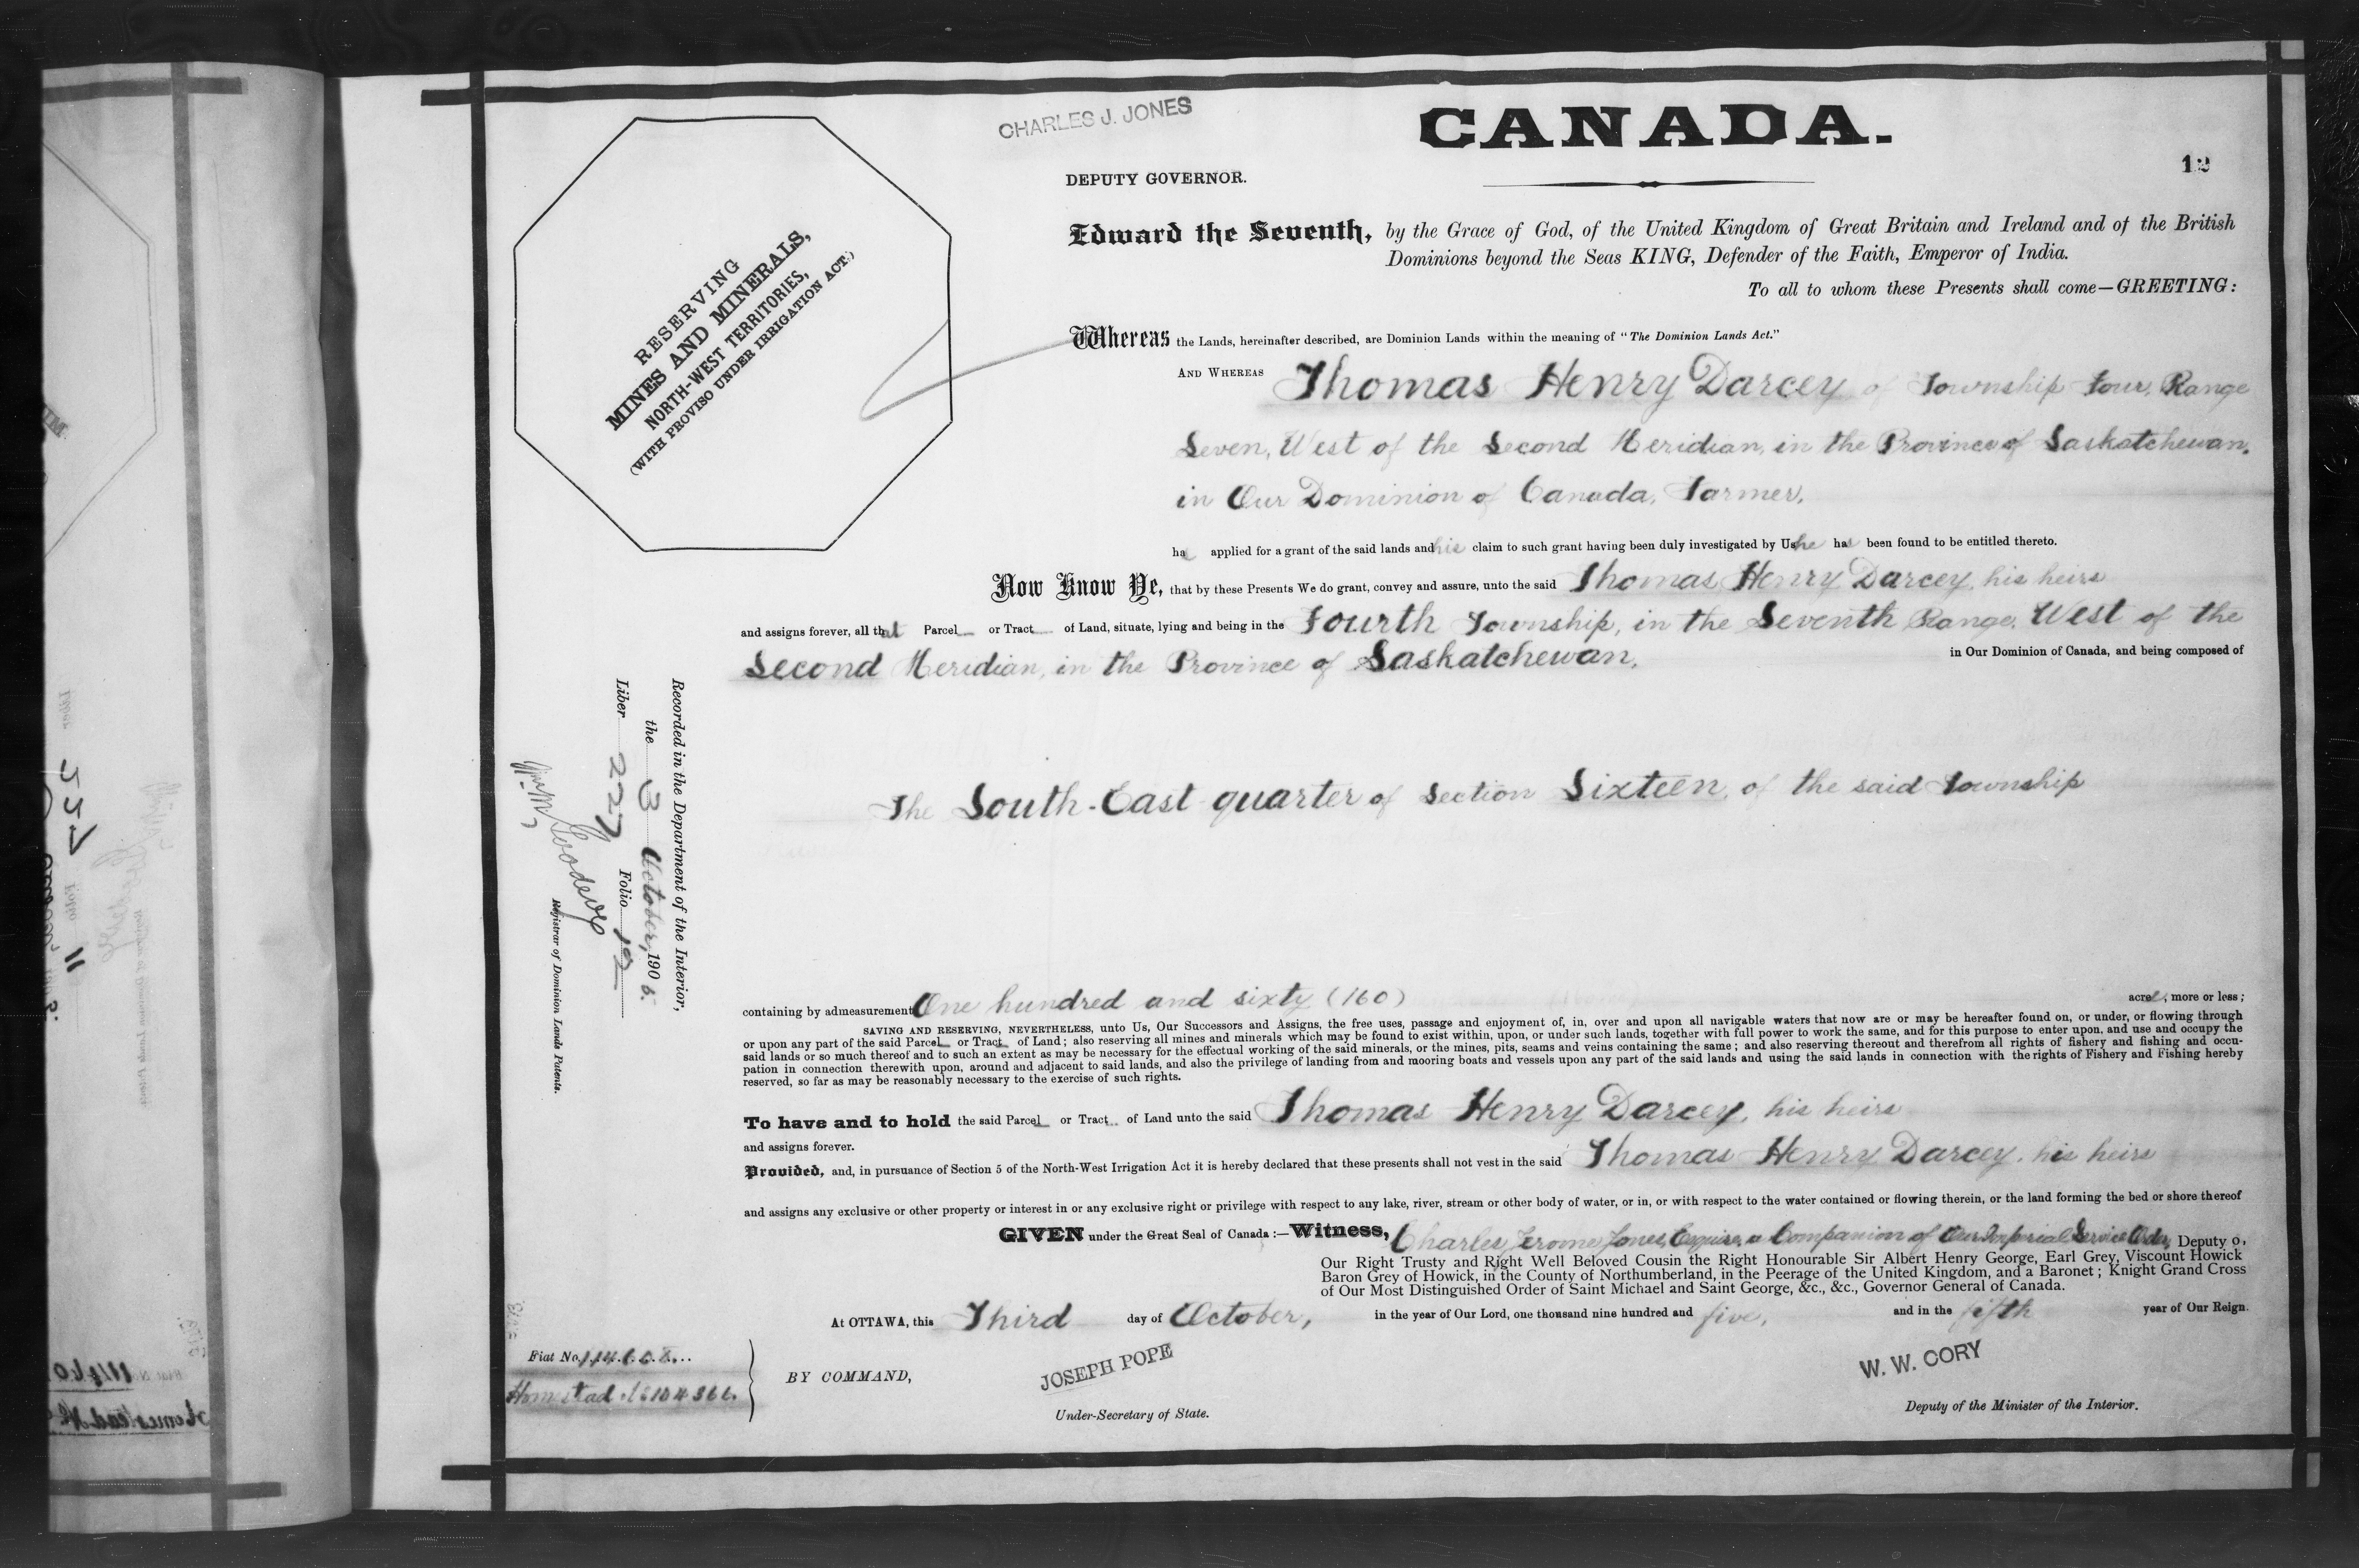 CHARLES J. JONES
CANADA.
DEPUTY GOVERNOR.
12
RESERVING
MINES AND MINERALS,
NORTH-WEST TERRITORIES,
(WITH PROVISO UNDER IRRIGATION ACT.)
Edward the Seventh, by the Grace of God, of the United Kingdom of Great Britain and Ireland and of the British
Dominions beyond the Seas KING, Defender of the Faith, Emperor of India.
To all to whom these Presents shall come—GREETING:
Whereas the Lands, hereinafter described, are Dominion Lands within the meaning of "The Dominion Lands Act."
AND WHEREAS Thomas Henry Darcey of Township four, Range
Seven, West of the Second Meridian, in the Province of Saskatchewan,
in Our Dominion of Canada, Farmer,
has applied for a grant of the said lands and his claim to such grant having been duly investigated by Us he has been found to be entitled thereto.
Now Know Ye, that by these Presents We do grant, convey and assure, unto the said Thomas Henry Darcey, his heirs
and assigns forever, all that Parcel or Tract of Land, situate, lying and being in the Fourth Township, in the Seventh Range, West of the
Second Meridian, in the Province of Saskatchewan, in Our Dominion of Canada, and being composed of
The South-East quarter of Section Sixteen, of the said Township
containing by admeasurement One hundred and sixty (160) acres, more or less;
SAVING AND RESERVING, NEVERTHELESS, unto Us, Our Successors and Assigns, the free uses, passage and enjoyment of, in, over and upon all navigable waters that now are or may be hereafter found on, or under, or flowing through
or upon any part of the said Parcel or Tract of Land; also reserving all mines and minerals which may be found to exist within, upon, or under such lands, together with full power to work the same, and for this purpose to enter upon, and use and occupy the
said lands or so much thereof and to such an extent as may be necessary for the effectual working of the said minerals, or the mines, pits, seams and veins containing the same; and also reserving thereout and therefrom all rights of fishery and fishing and occu-
pation in connection therewith upon, around and adjacent to said lands, and also the privilege of landing from and mooring boats and vessels upon any part of the said lands and using the said lands in connection with the rights of Fishery and Fishing hereby
reserved, so far as may be reasonably necessary to the exercise of such rights.
To have and to hold the said Parcel or Tract of Land unto the said Thomas Henry Darcey, his heirs
and assigns forever.
Provided, and, in pursuance of Section 5 of the North-West Irrigation Act it is hereby declared that these presents shall not vest in the said Thomas Henry Darcey, his heirs
and assigns any exclusive or other property or interest in or any exclusive right or privilege with respect to any lake, river, stream or other body of water, or in, or with respect to the water contained or flowing therein, or the land forming the bed or shore thereof
GIVEN under the Great Seal of Canada:—Witness, Charles Jerome Jones, Esquire, a Companion of Our Imperial Service Order, Deputy o,
Our Right Trusty and Right Well Beloved Cousin the Right Honourable Sir Albert Henry George, Earl Grey, Viscount Howick
Baron Grey of Howick, in the County of Northumberland, in the Peerage of the United Kingdom, and a Baronet; Knight Grand Cross
of Our Most Distinguished Order of Saint Michael and Saint George, &c., &c., Governor General of Canada.
At OTTAWA, this Third day of October, in the year of Our Lord, one thousand nine hundred and five, and in the fifth year of Our Reign.
BY COMMAND,
JOSEPH POPE
Under-Secretary of State.
W. W. CORY
Deputy of the Minister of the Interior.
Fiat No. 114608
Homestead No 104366
Recorded in the Department of the Interior,
the 3 October, 1905.
Liber 227 Folio 12
Wm M Goodeve
Registrar of Dominion Lands Patents.